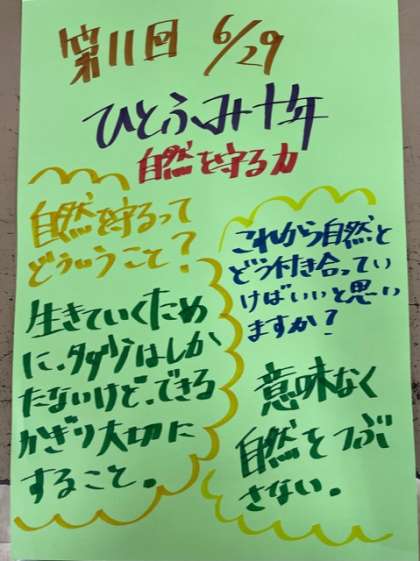 第11回 6/29
ひとふみ十年
自然を守る力
自然を守るって
どういうこと?
生きていくため
に、ダメージはしか
たないけど、できる
かぎり大切に
すること。
これから自然と
どう付き合ってい
けばいいと思い
ますか?
意味なく
自然をつぶ
さない。